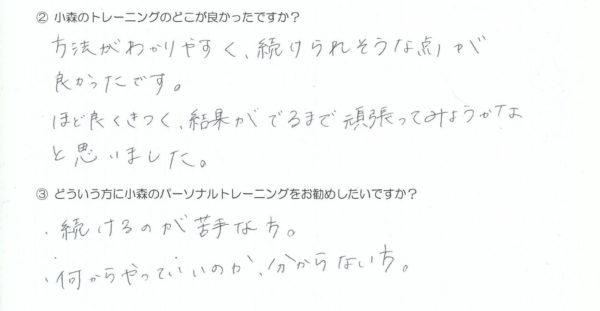 ② 小森のトレーニングのどこが良かったですか？
方法がわかりやすく、続けられそうな点が
良かったです。
ほど良くきつく、結果がでるまで頑張ってみようかな
と思いました。
③ どういう方に小森のパーソナルトレーニングをお勧めしたいですか？
・続けるのが苦手な方。
・何からやっていいのか、分からない方。